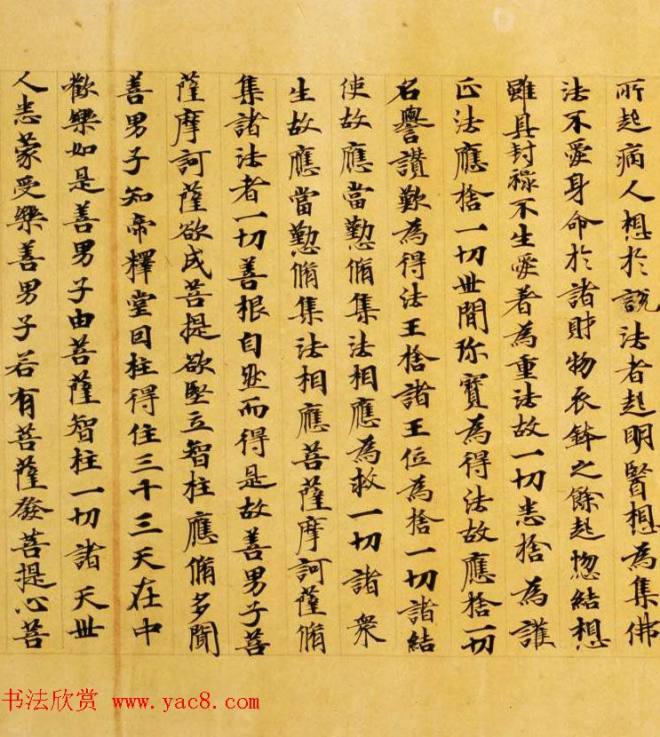 所起病人想於說法者起明醫想為集佛
法不愛身命於諸財物衣鉢之餘起惱結想
雖具封祿不生愛著為重法故一切悉捨為護
正法應捨一切世間珎寶為得法故應捨一切
名譽讚歎為得法王捨諸王位為捨一切諸結
使故應當懃脩集法相應為救一切諸衆
生故應當懃脩集法相應菩薩摩訶薩脩
集諸法者一切善根自然而得是故善男子菩
薩摩訶薩欲成菩提欲堅立智柱應脩多聞
善男子知帝釋堂因柱得住三十三天在中
歡樂如是善男子由菩薩智柱一切諸天世
人悉蒙受樂善男子若有菩薩發菩提心菩
书法欣赏 www.yac8.com